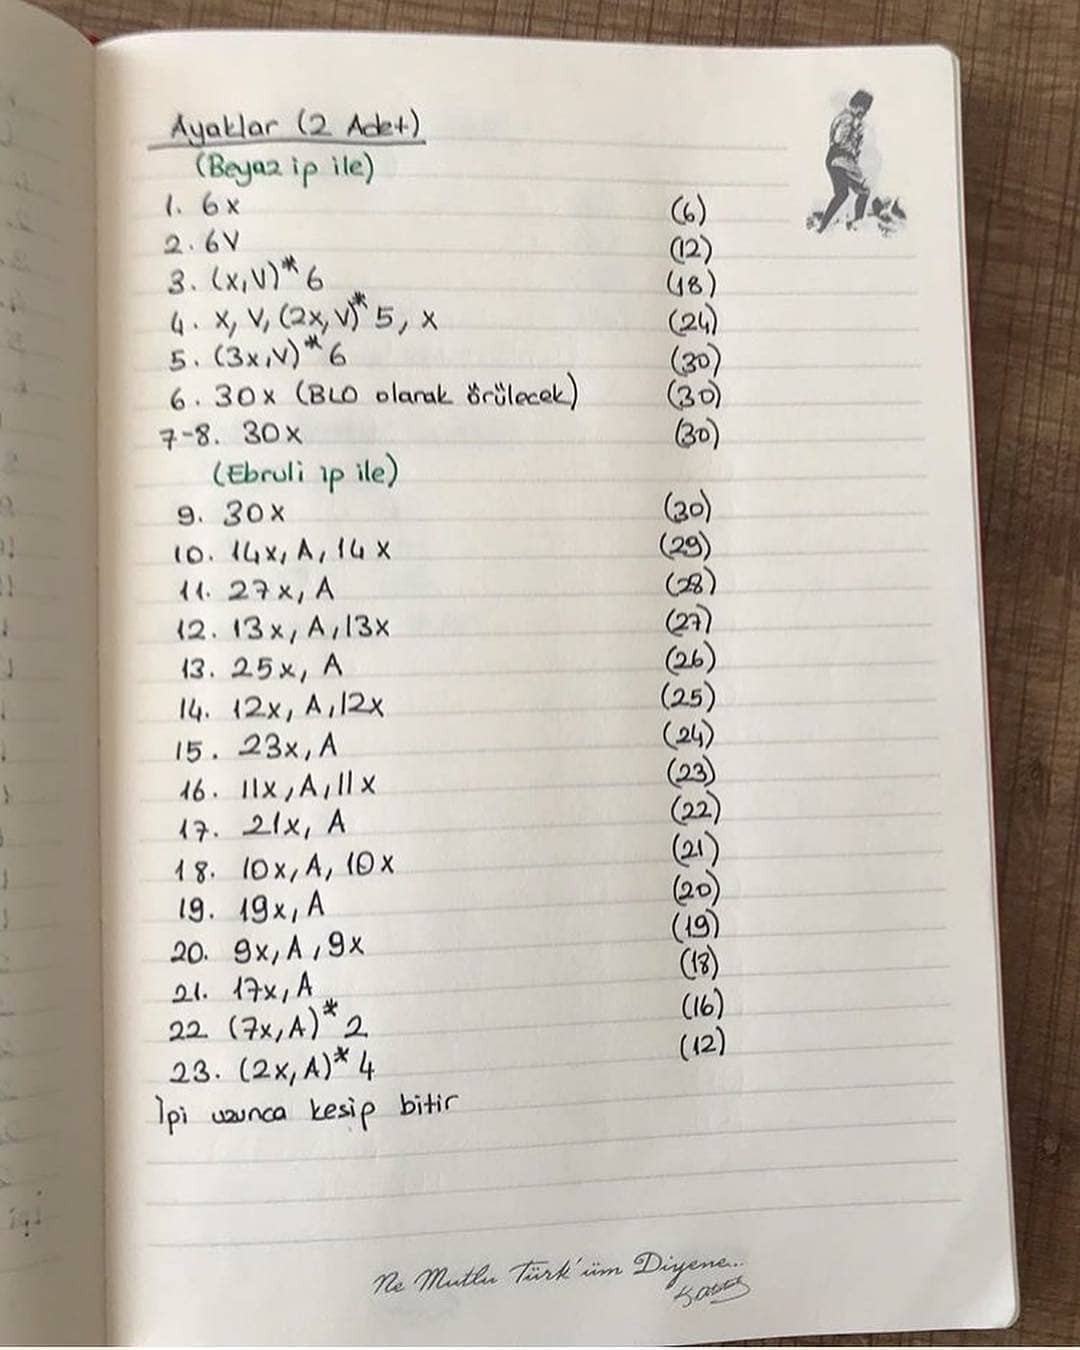 Ayaklar (2 Adet)
(Beyaz ip ile)
1. 6x (6)
2. 6V (12)
3. (x,V)* 6 (18)
4. x, V, (2x, V)* 5, x (24)
5. (3x,V)* 6 (30)
6. 30x (BLO olarak örülecek) (30)
7-8. 30x (30)
(Ebruli ip ile)
9. 30x (30)
10. 14x, A, 14x (29)
11. 27x, A (28)
12. 13x, A, 13x (27)
13. 25x, A (26)
14. 12x, A, 12x (25)
15. 23x, A (24)
16. 11x, A, 11x (23)
17. 21x, A (22)
18. 10x, A, 10x (21)
19. 19x, A (20)
20. 9x, A, 9x (19)
21. 17x, A (18)
22 (7x, A)* 2 (16)
23. (2x, A)* 4 (12)
İpi uzunca kesip bitir
Ne Mutlu Türk'üm Diyene...